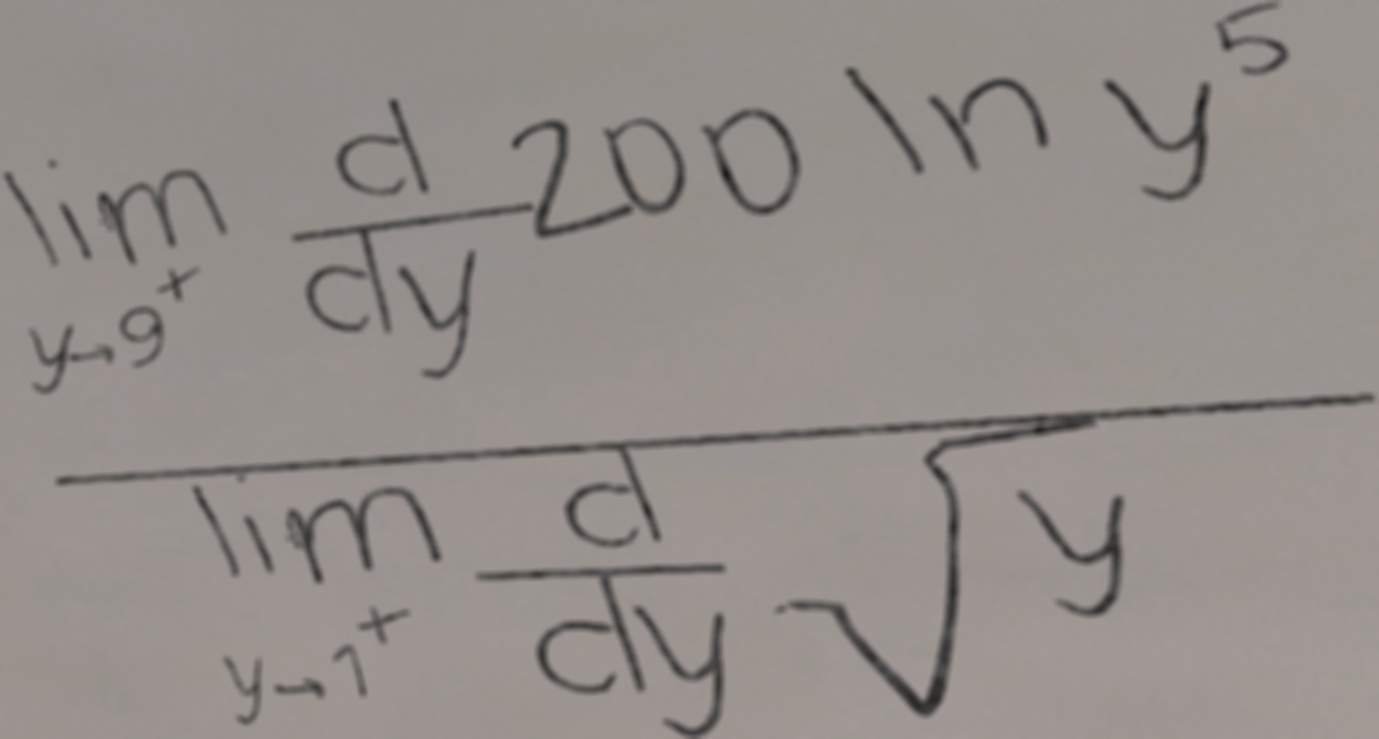 \frac{\lim_{y \to 9^+} \frac{d}{dy} 200 \ln y^5}{\lim_{y \to 1^+} \frac{d}{dy} \sqrt{y}}